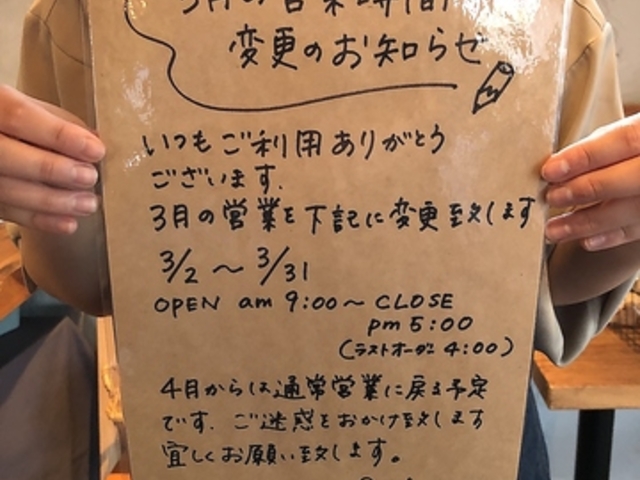 3月の営業時間
変更のお知らせ
いつもご利用ありがとう
ございます.
3月の営業を下記に変更致します
3/2 〜 3/31
OPEN am 9:00〜 CLOSE
pm 5:00
(ラストオーダー 4:00)
4月からは通常営業に戻る予定
です. ご迷惑をおかけ致します
宜しくお願い致します。